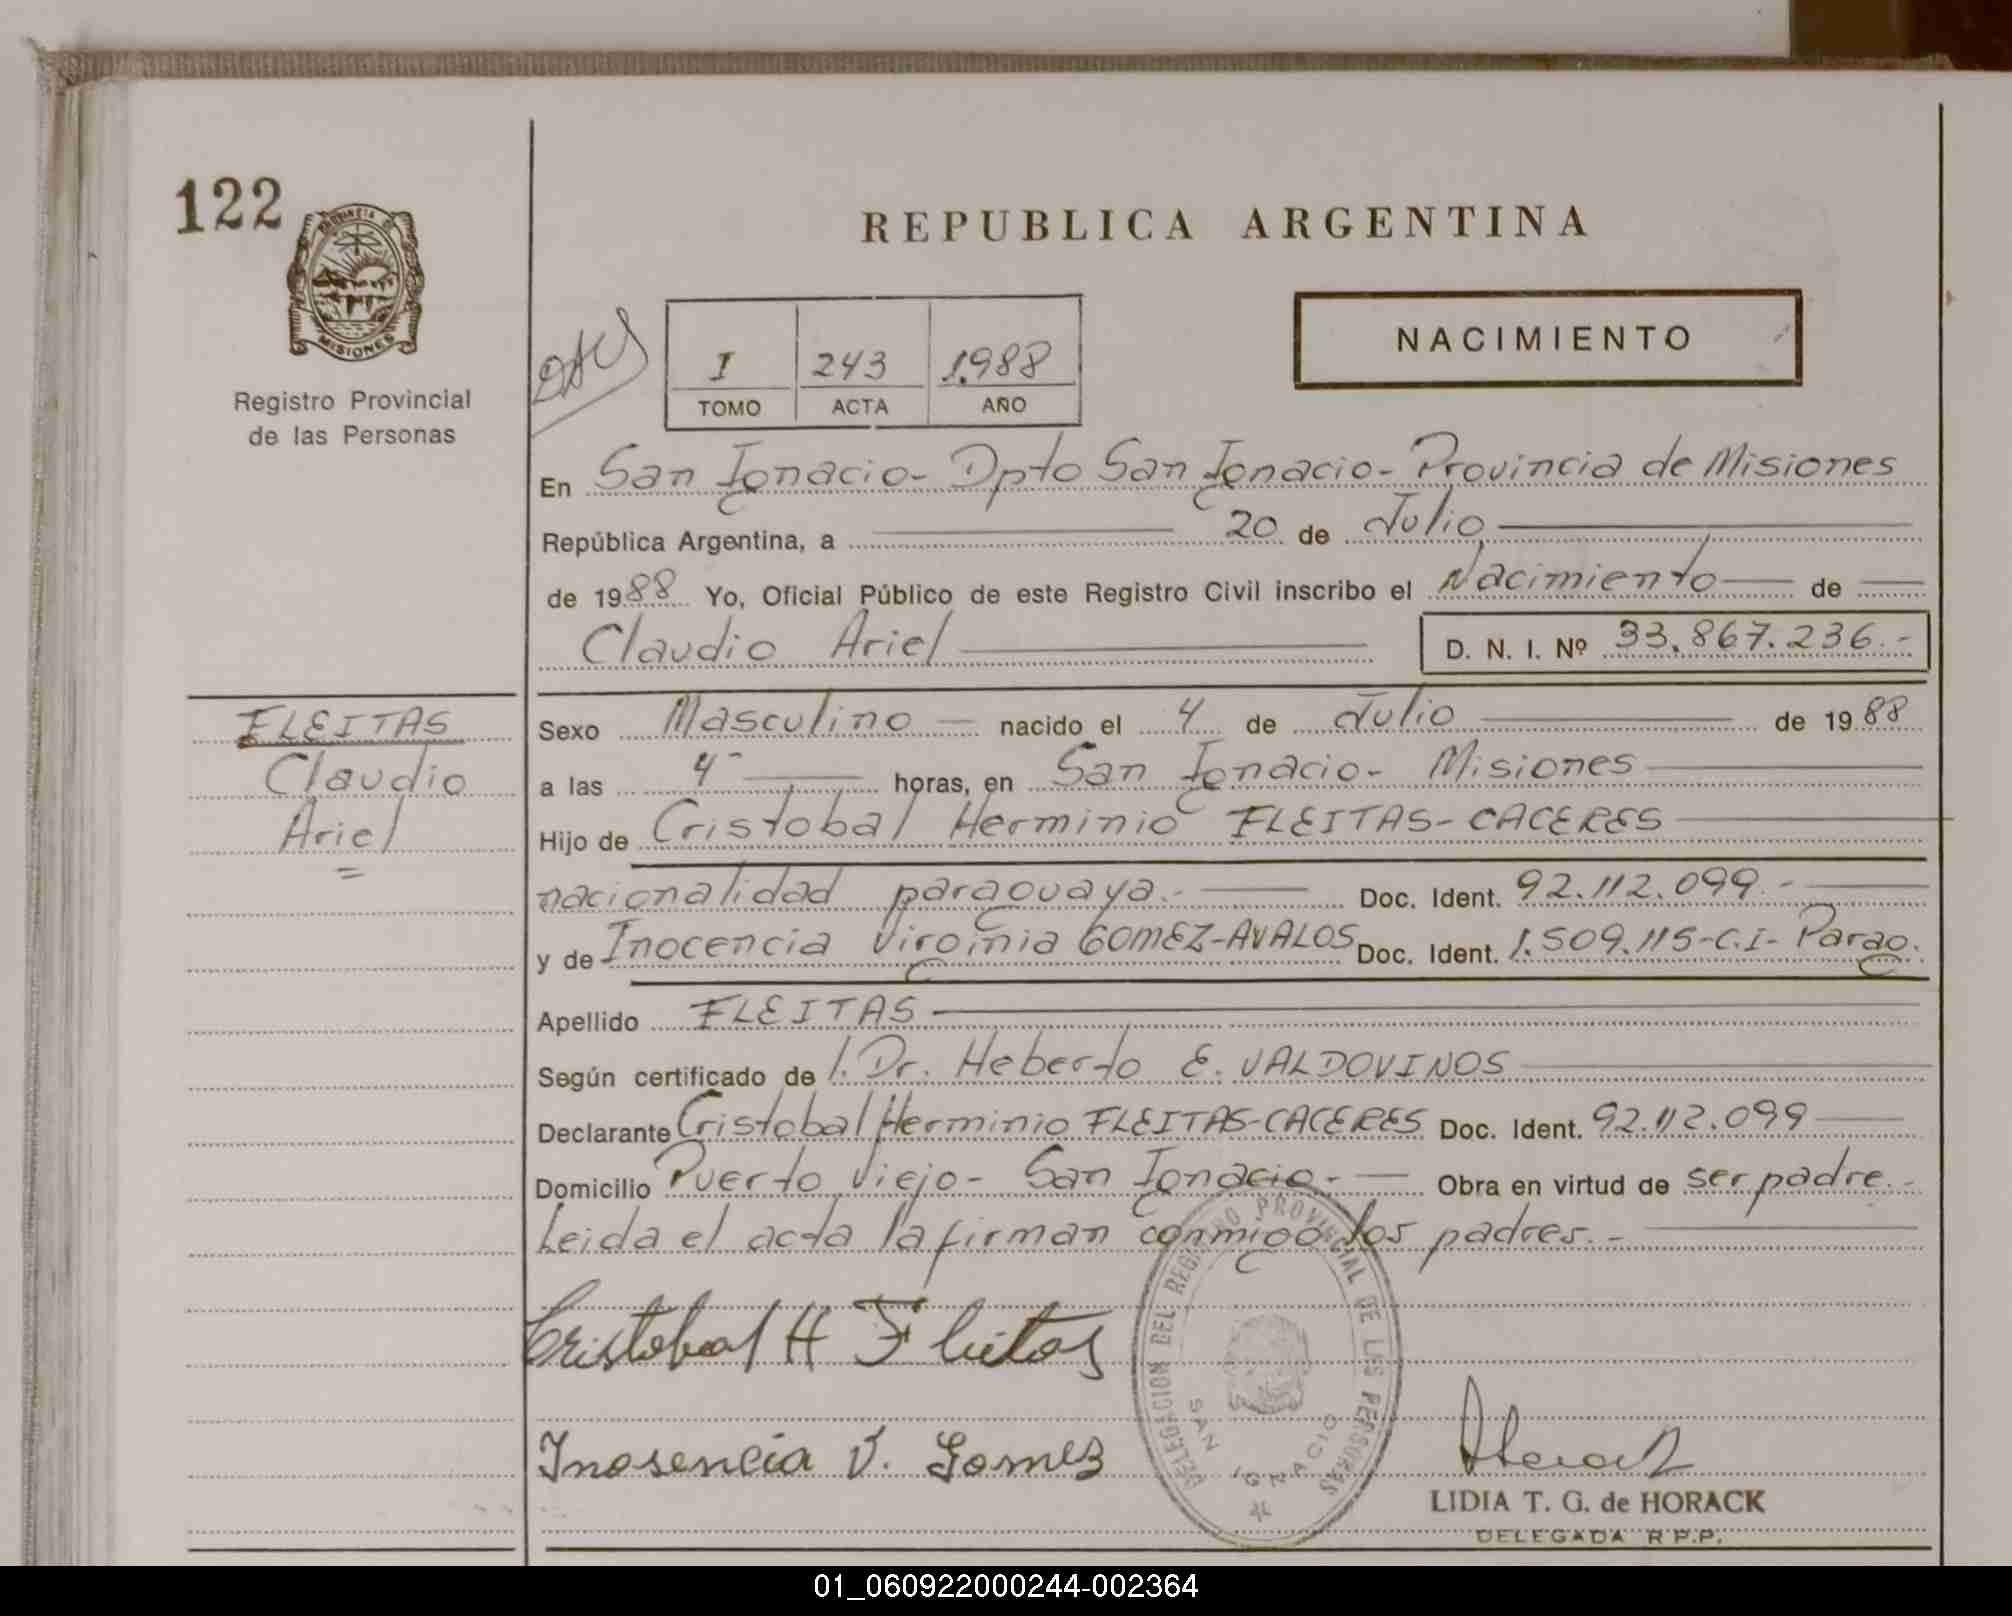 122
PROVINCIA DE
MISIONES
Registro Provincial
de las Personas
REPUBLICA ARGENTINA
NACIMIENTO
I 243 1.988
TOMO ACTA AÑO
En San Ignacio - Dpto San Ignacio - Provincia de Misiones
República Argentina, a 20 de Julio
de 1988 Yo, Oficial Público de este Registro Civil inscribo el Nacimiento de
Claudio Ariel D. N. I. Nº 33.867.236.-
FLEITAS
Claudio
Ariel
=
Sexo Masculino nacido el 4 de Julio de 1988
a las 4 horas, en San Ignacio - Misiones
Hijo de Cristobal Herminio FLEITAS-CACERES
nacionalidad paraguaya.- Doc. Ident. 92.112.099.-
y de Inocencia Virginia GOMEZ-AVALOS Doc. Ident. 1.509.115-C.I- Parag.
Apellido FLEITAS
Según certificado de l. Dr. Heberto E. VALDOVINOS
Declarante Cristobal Herminio FLEITAS-CACERES Doc. Ident. 92.112.099
Domicilio Puerto Viejo - San Ignacio.- Obra en virtud de ser padre.-
Leida el acta la firman conmigo los padres.-
Cristobal H Fleitas
Inosencia V. Gomez
DELEGACION DEL REGISTRO PROVINCIAL DE LAS PERSONAS
SAN IGNACIO
LIDIA T. G. de HORACK
DELEGADA R.P.P.
01_060922000244-002364